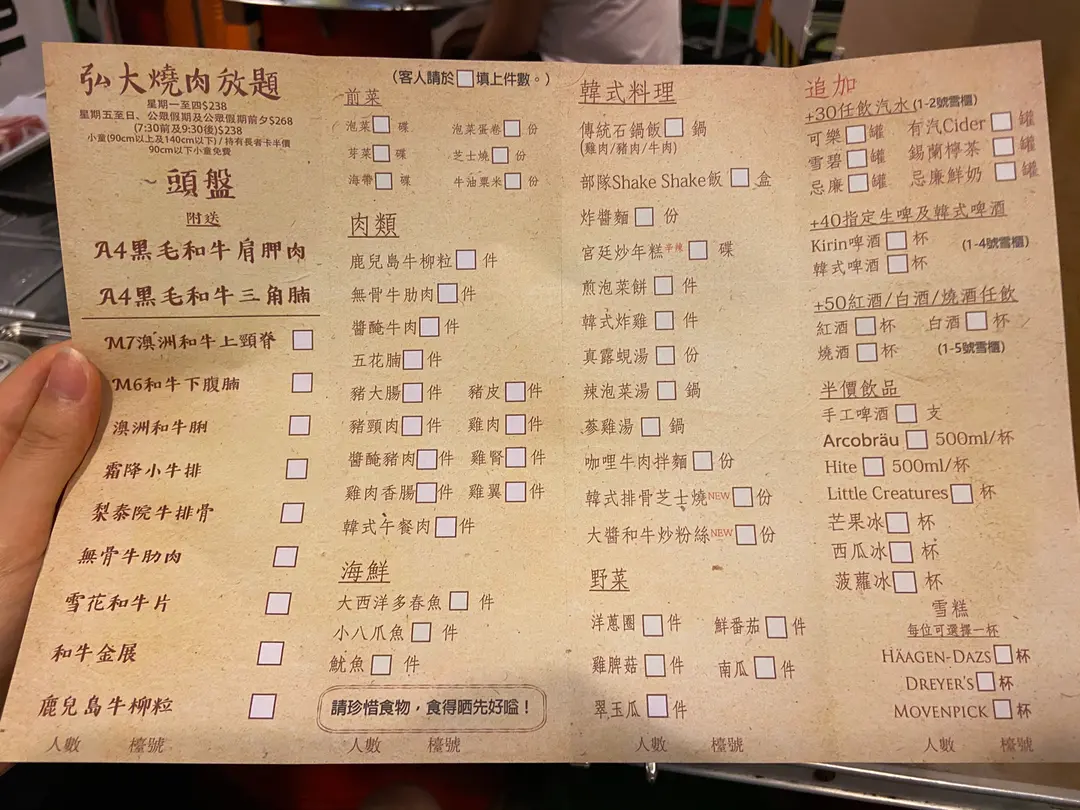 弘大燒肉放題
星期一至四$238
星期五至日、公眾假期及公眾假期前夕$268
(7:30前及9:30後)$238
小童(90cm以上及140cm以下) / 持有長者卡半價
90cm以下小童免費
頭盤
附送
A4黑毛和牛肩胛肉
A4黑毛和牛三角腩
M7澳洲和牛上頸脊
M6和牛下腹腩
澳洲和牛脷
霜降小牛排
梨泰院牛排骨
無骨牛肋肉
雪花和牛片
和牛金展
鹿兒島牛柳粒
人數 檯號
(客人請於□填上件數。)
前菜
泡菜□碟 泡菜蛋卷□份
芽菜□碟 芝士燒□份
海帶□碟 牛油粟米□份
肉類
鹿兒島牛柳粒□件
無骨牛肋肉□件
醬醃牛肉□件
五花腩□件
豬大腸□件 豬皮□件
豬頸肉□件 雞肉□件
醬醃豬肉□件 雞腎□件
雞肉香腸□件 雞翼□件
韓式午餐肉□件
海鮮
大西洋多春魚□件
小八爪魚□件
魷魚□件
請珍惜食物，食得晒先好嗌！
人數 檯號
韓式料理
傳統石鍋飯□鍋
(雞肉/豬肉/牛肉)
部隊Shake Shake飯□盒
炸醬麵□份
宮廷炒年糕辛辣□碟
煎泡菜餅□件
韓式炸雞□件
真露蜆湯□份
辣泡菜湯□鍋
蔘雞湯□鍋
咖哩牛肉拌麵□份
韓式排骨芝士燒NEW□份
大醬和牛炒粉絲NEW□份
野菜
洋蔥圈□件 鮮番茄□件
雞脾菇□件 南瓜□件
翠玉瓜□件
人數 檯號
追加
+30任飲汽水(1-2號雪櫃)
可樂□罐 有汽Cider□罐
雪碧□罐 錫蘭檸茶□罐
忌廉□罐 忌廉鮮奶□罐
+40指定生啤及韓式啤酒
Kirin啤酒□杯 (1-4號雪櫃)
韓式啤酒□杯
+50紅酒/白酒/燒酒任飲
紅酒□杯 白酒□杯
燒酒□杯 (1-5號雪櫃)
半價飲品
手工啤酒□支
Arcobräu□500ml/杯
Hite□500ml/杯
Little Creatures□杯
芒果冰□杯
西瓜冰□杯
菠蘿冰□杯
雪糕
每位可選擇一杯
HÄAGEN-DAZS□杯
DREYER'S□杯
MOVENPICK□杯
人數 檯號